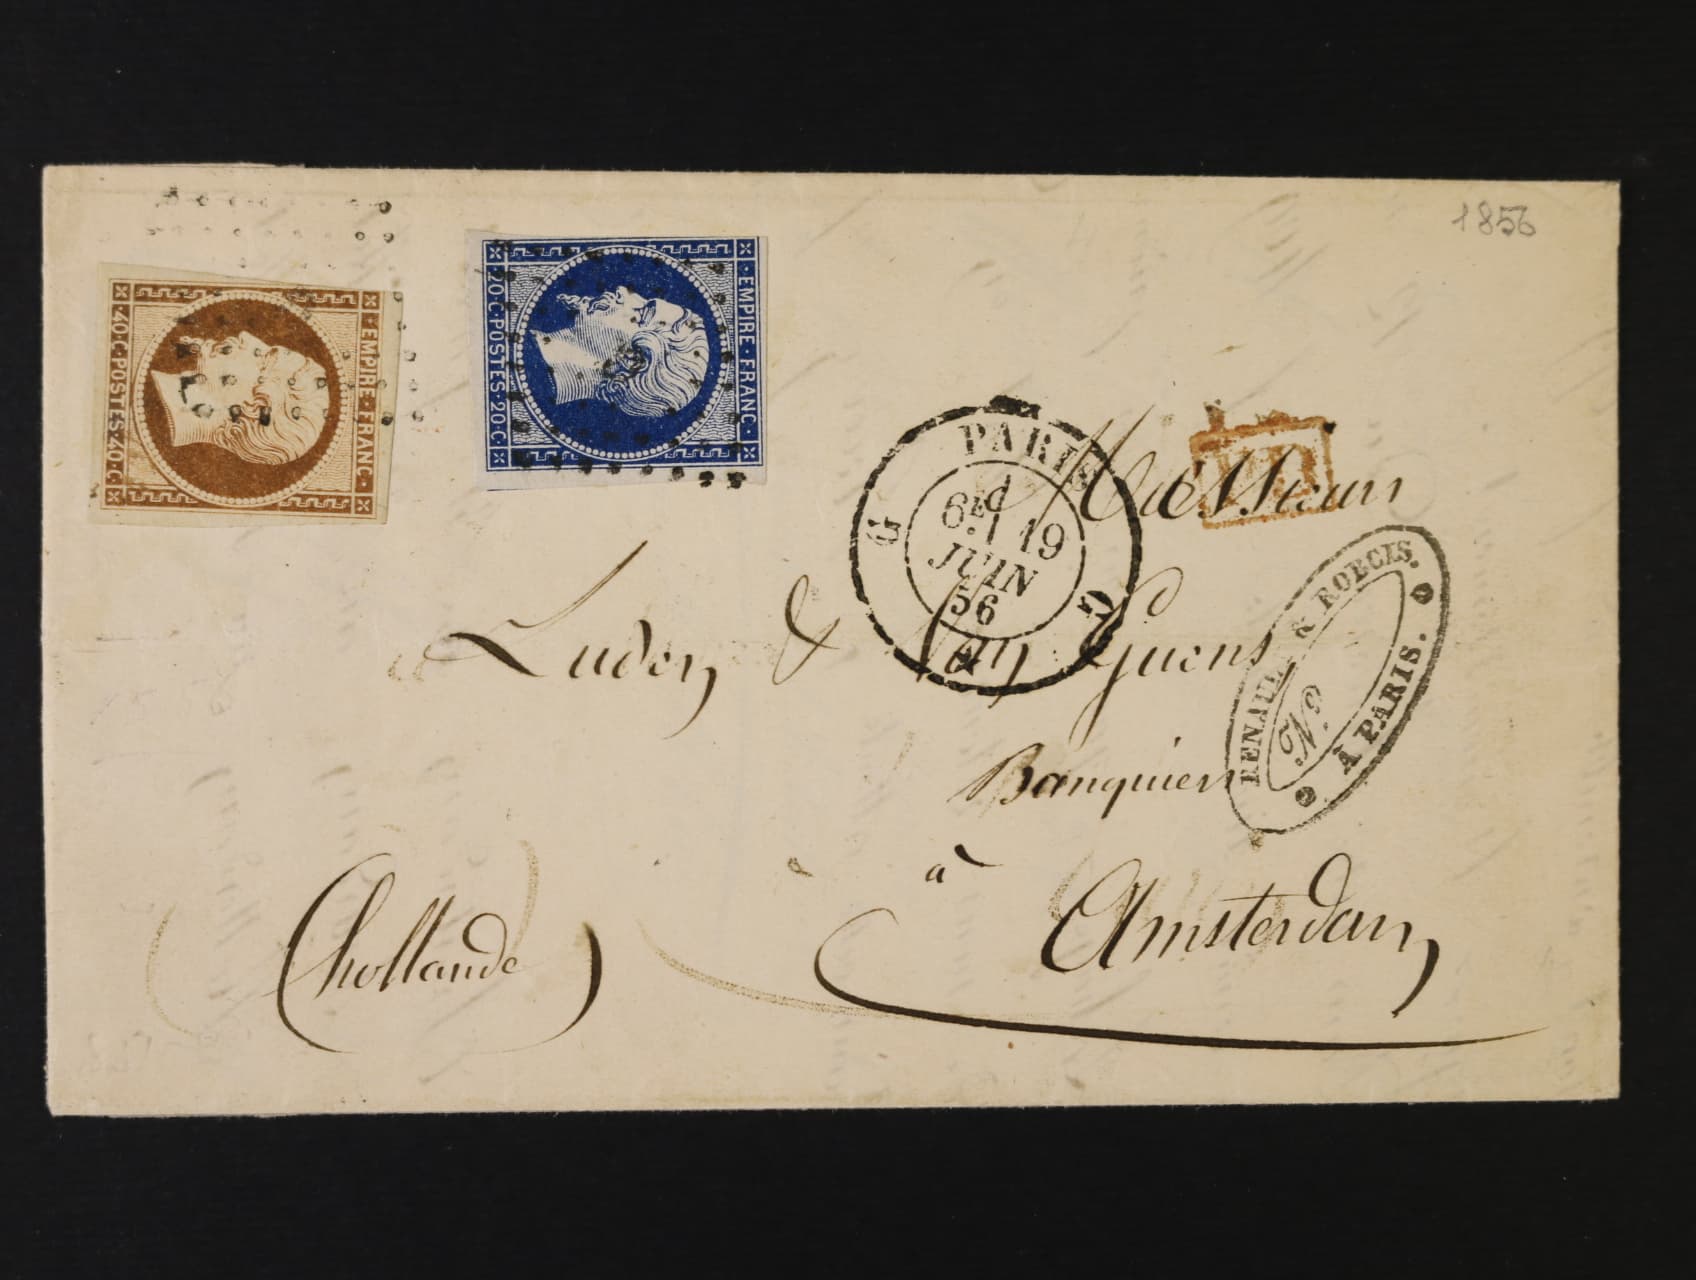 1856
EMPIRE · FRANC ·
40 · C · POSTES · 40 · C
EMPIRE · FRANC ·
20 · C · POSTES · 20 · C
PARIS
6E
19
JUIN
56
G G
Messieurs
Luden & Van Geuns
Banquiers
à
Amsterdam
(hollande)
RENAULT & ROBCIS.
N°
À PARIS.